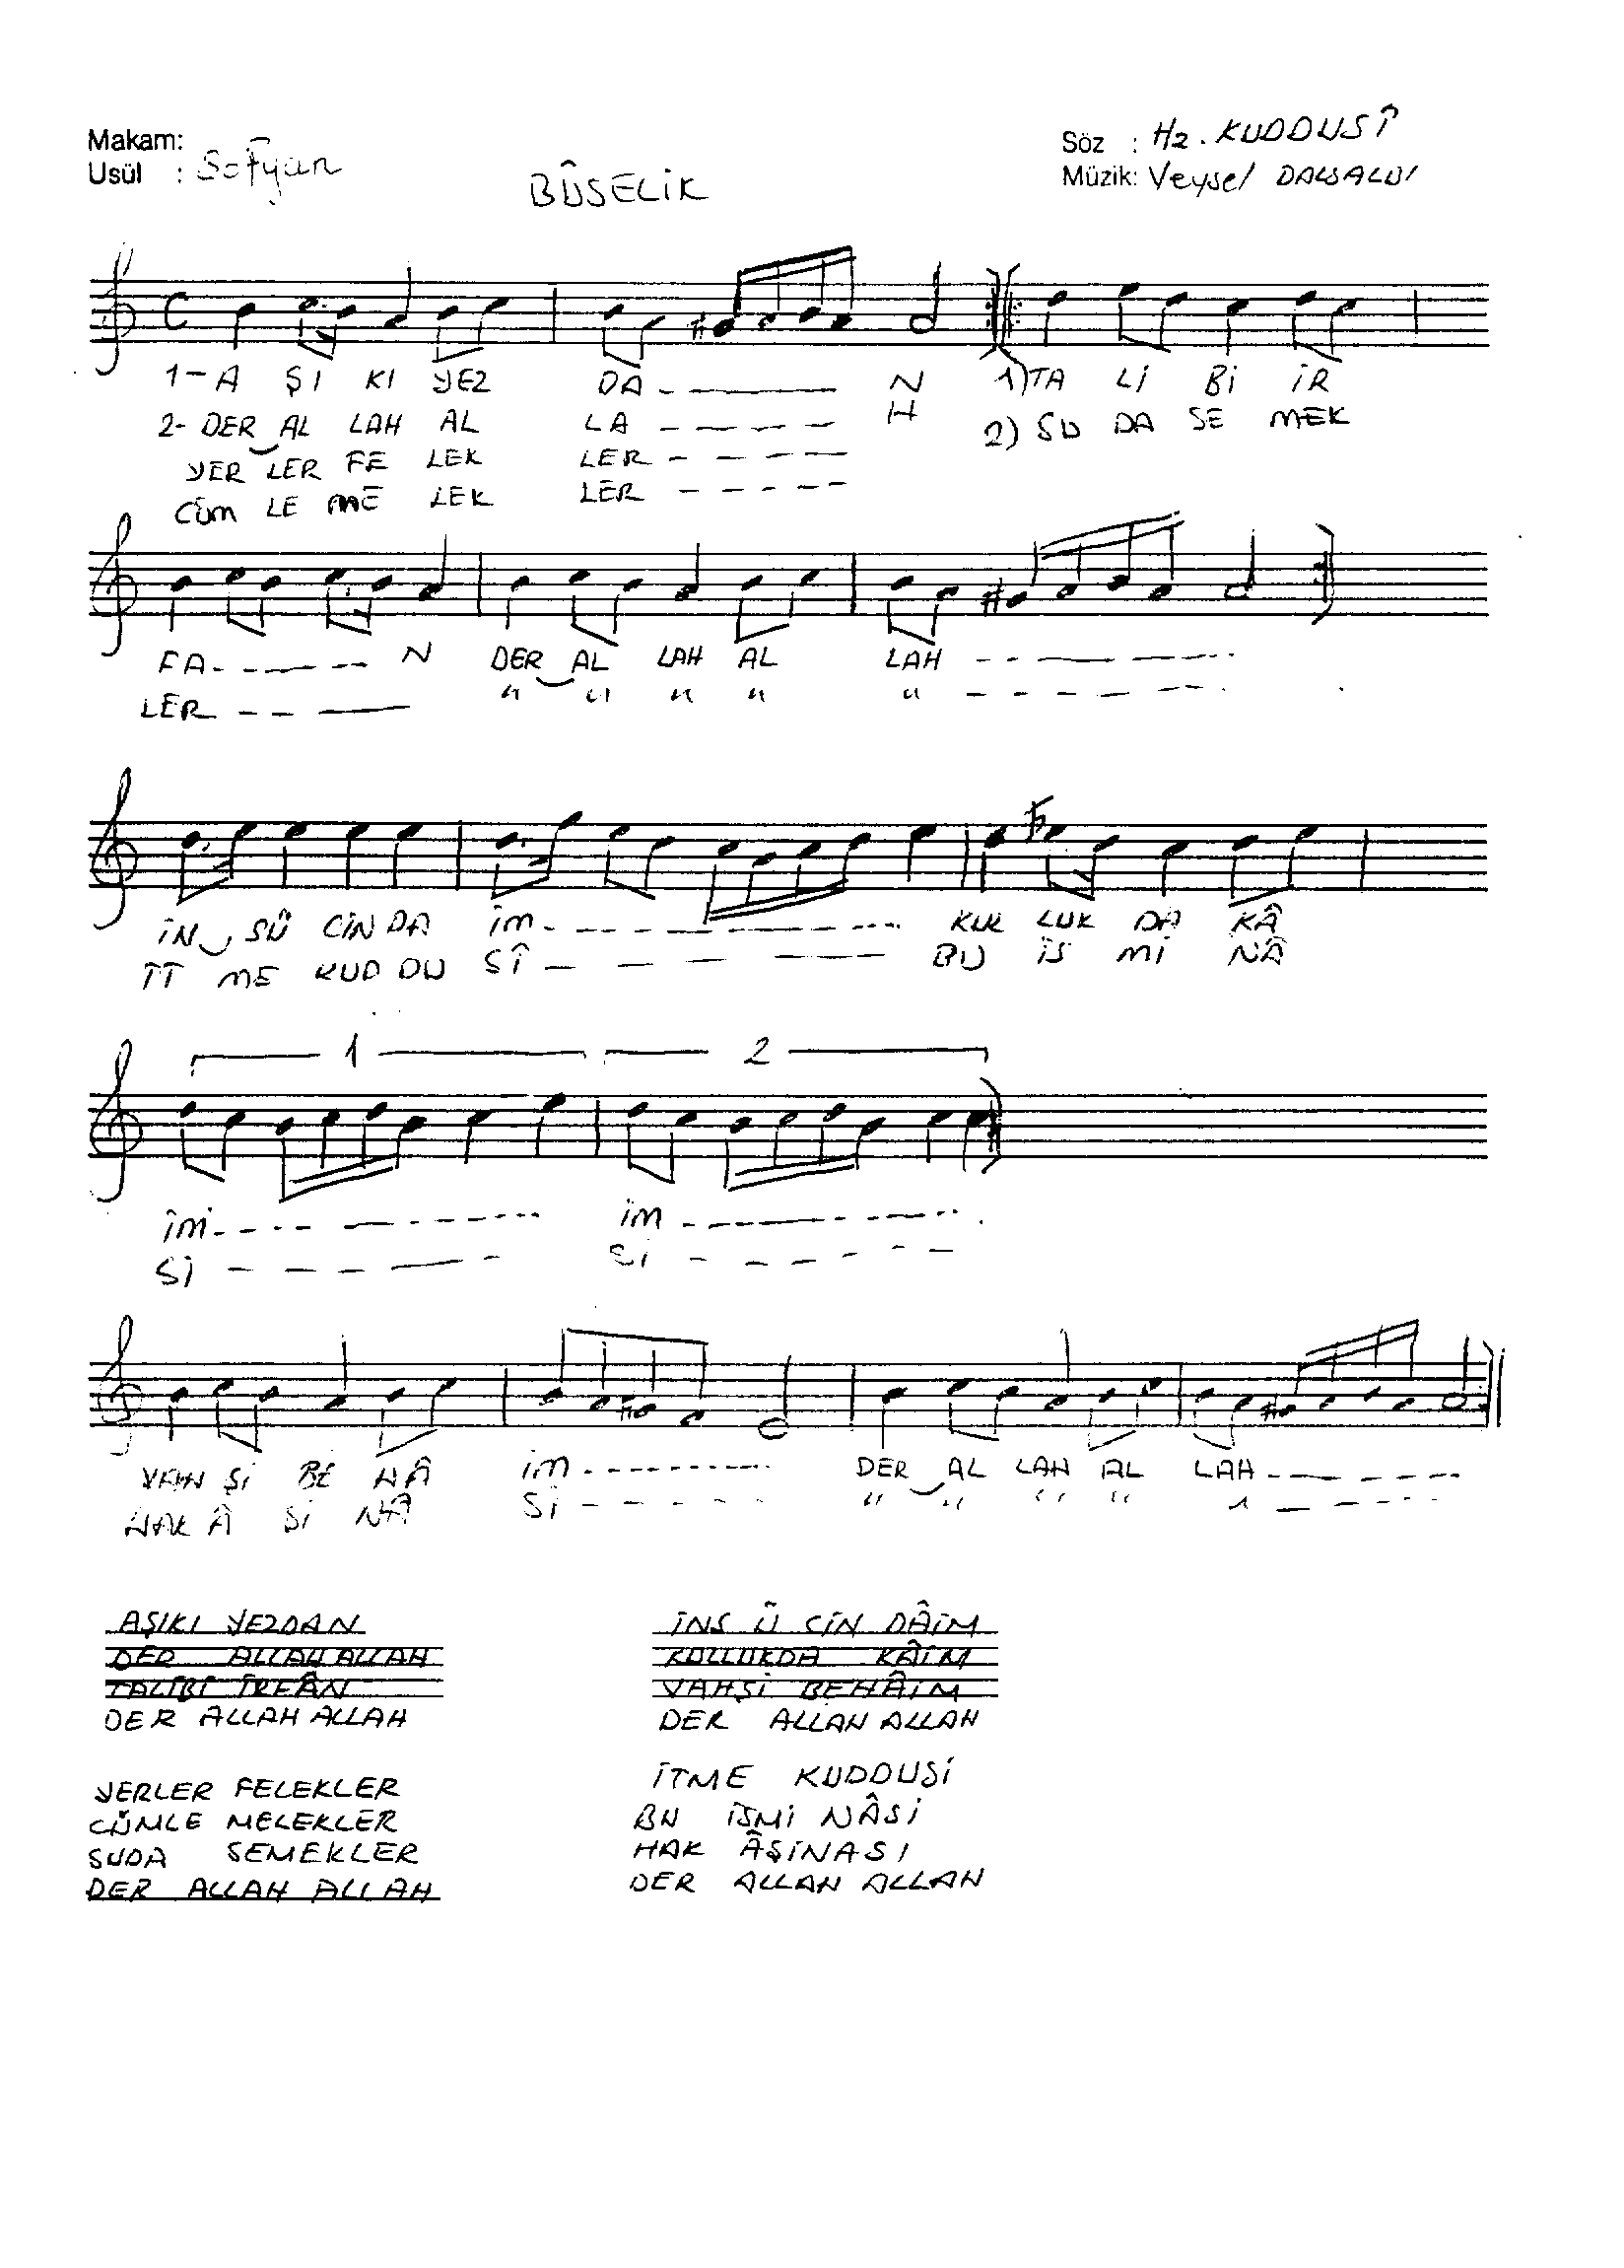 Makam:
Usül : Sofyan
BÛSELİK
Söz : Hz. KUDDUSÎ
Müzik: Veysel DALSALDI
1- A ŞI KI YEZ DA - - - N 1) TA Lİ Bİ İR
2- DER AL LAH AL LA - - - - H 2) SU DA SE MEK
YER LER FE LEK LER - - - -
CÜM LE ME LEK LER - - - - -
FA - - - - - N DER AL LAH AL LAH - - - - - -
LER - - - " " " " " - - - - - -
İN SÜ CİN DA İM - - - - - - - - KUL LUK DA KÂ
İT ME KUD DU SÎ - - - - - BU İS Mİ NÂ
1 2
İM - - - - - - - - - İM - - - - - - - -
Sİ - - - - - Sİ - - - - - -
VAH Şİ BE HÂ İM - - - - - - - - DER AL LAH AL LAH - - - - -
HAK Â Şİ NÂ Sİ - - - - - " " " " " - - - -
AŞIKI YEZDAN
DER ALLAH ALLAH
TALİBİ İRFÂN
DER ALLAH ALLAH
İNS Ü CİN DÂİM
KULLUKDA KÂİM
VAHŞİ BEHÂİM
DER ALLAH ALLAH
YERLER FELEKLER
CÜMLE MELEKLER
SUDA SEMEKLER
DER ALLAH ALLAH
İTME KUDDUSİ
BU İSMİ NÂSİ
HAK ÂŞİNASI
DER ALLAH ALLAH